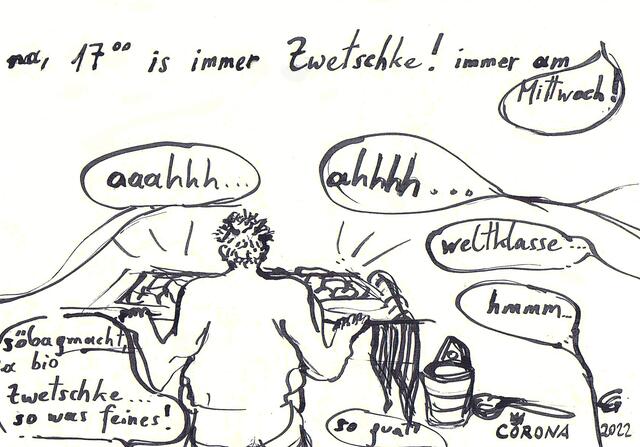 na, 17⁰⁰ is immer Zwetschke! immer am
Mittwoch!
aaahhh...
ahhhh...
weltklasse...
hmmm...
söbagmacht,
a bio
Zwetschke....
so was feines!
so guat!
CORONA 2022